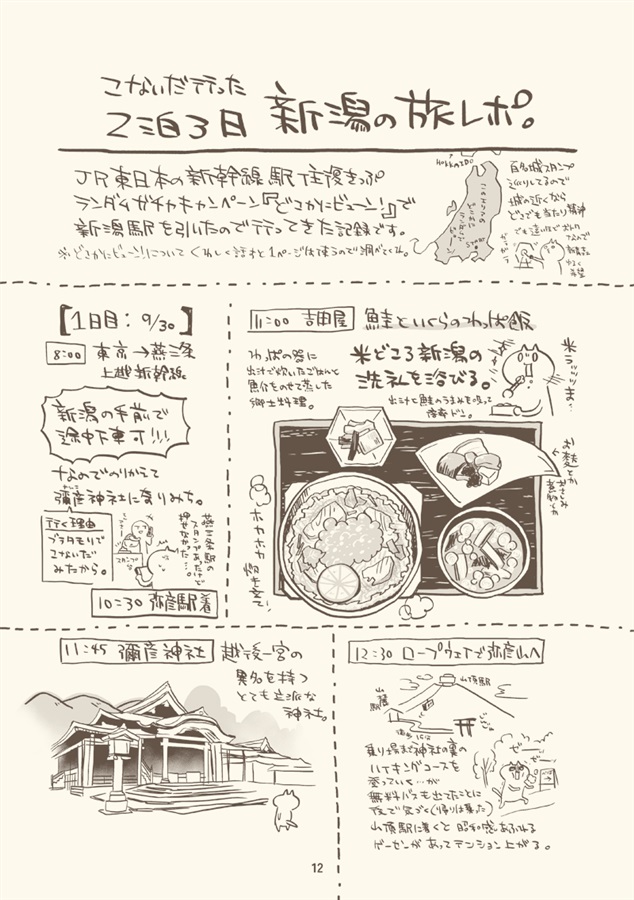 こないだ行った
2泊3日 新潟の旅レポ。
JR東日本の新幹線駅往復きっぷ
ランダムガチャキャンペーン『どこかにビューン!』で
新潟駅を引いたので行ってきた記録です。
※どこかにビューン!についてくわしく話すと1ページは使うので調べてくれ。
HOKKAIDO
START
百名城スタンプ
巡りしてるので
城の近くなら
どこでも当たり精神
【1日目: 9/30】
8:00 東京→燕三条
上越新幹線
新潟の手前で
途中下車可!!!
なのでのりかえて
彌彦神社に寄りみち。
行く理由
ブラタモリで
こないだ
みたから。
燕三条駅の
スタンプあったけど
押せなかった…。
スタンプ
10:30 弥彦駅着
11:00 吉田屋 鮭といくらのわっぱ飯
わっぱの器に
出汁で炊いたごはんと
魚介をのせて蒸した
郷土料理。
米どころ新潟の
洗礼を浴びる。
出汁と鮭のうまみを吸って
米ウッッッま…
お麩とか
ホカホカ
11:45 彌彦神社
越後一宮の
異名を持つ
とても立派な
神社。
12:30 ロープウェイで弥彦山へ
山頂駅
山麓駅
徒歩15分
ゼー
ゼー…
乗り場まで神社の裏の
ハイキングコースを
登っていく…が
無料バスも出てたことに
後で気づく(帰りは乗った)
山頂駅に着くと昭和感あふれる
ゲーセンがあってテンション上がる。
12